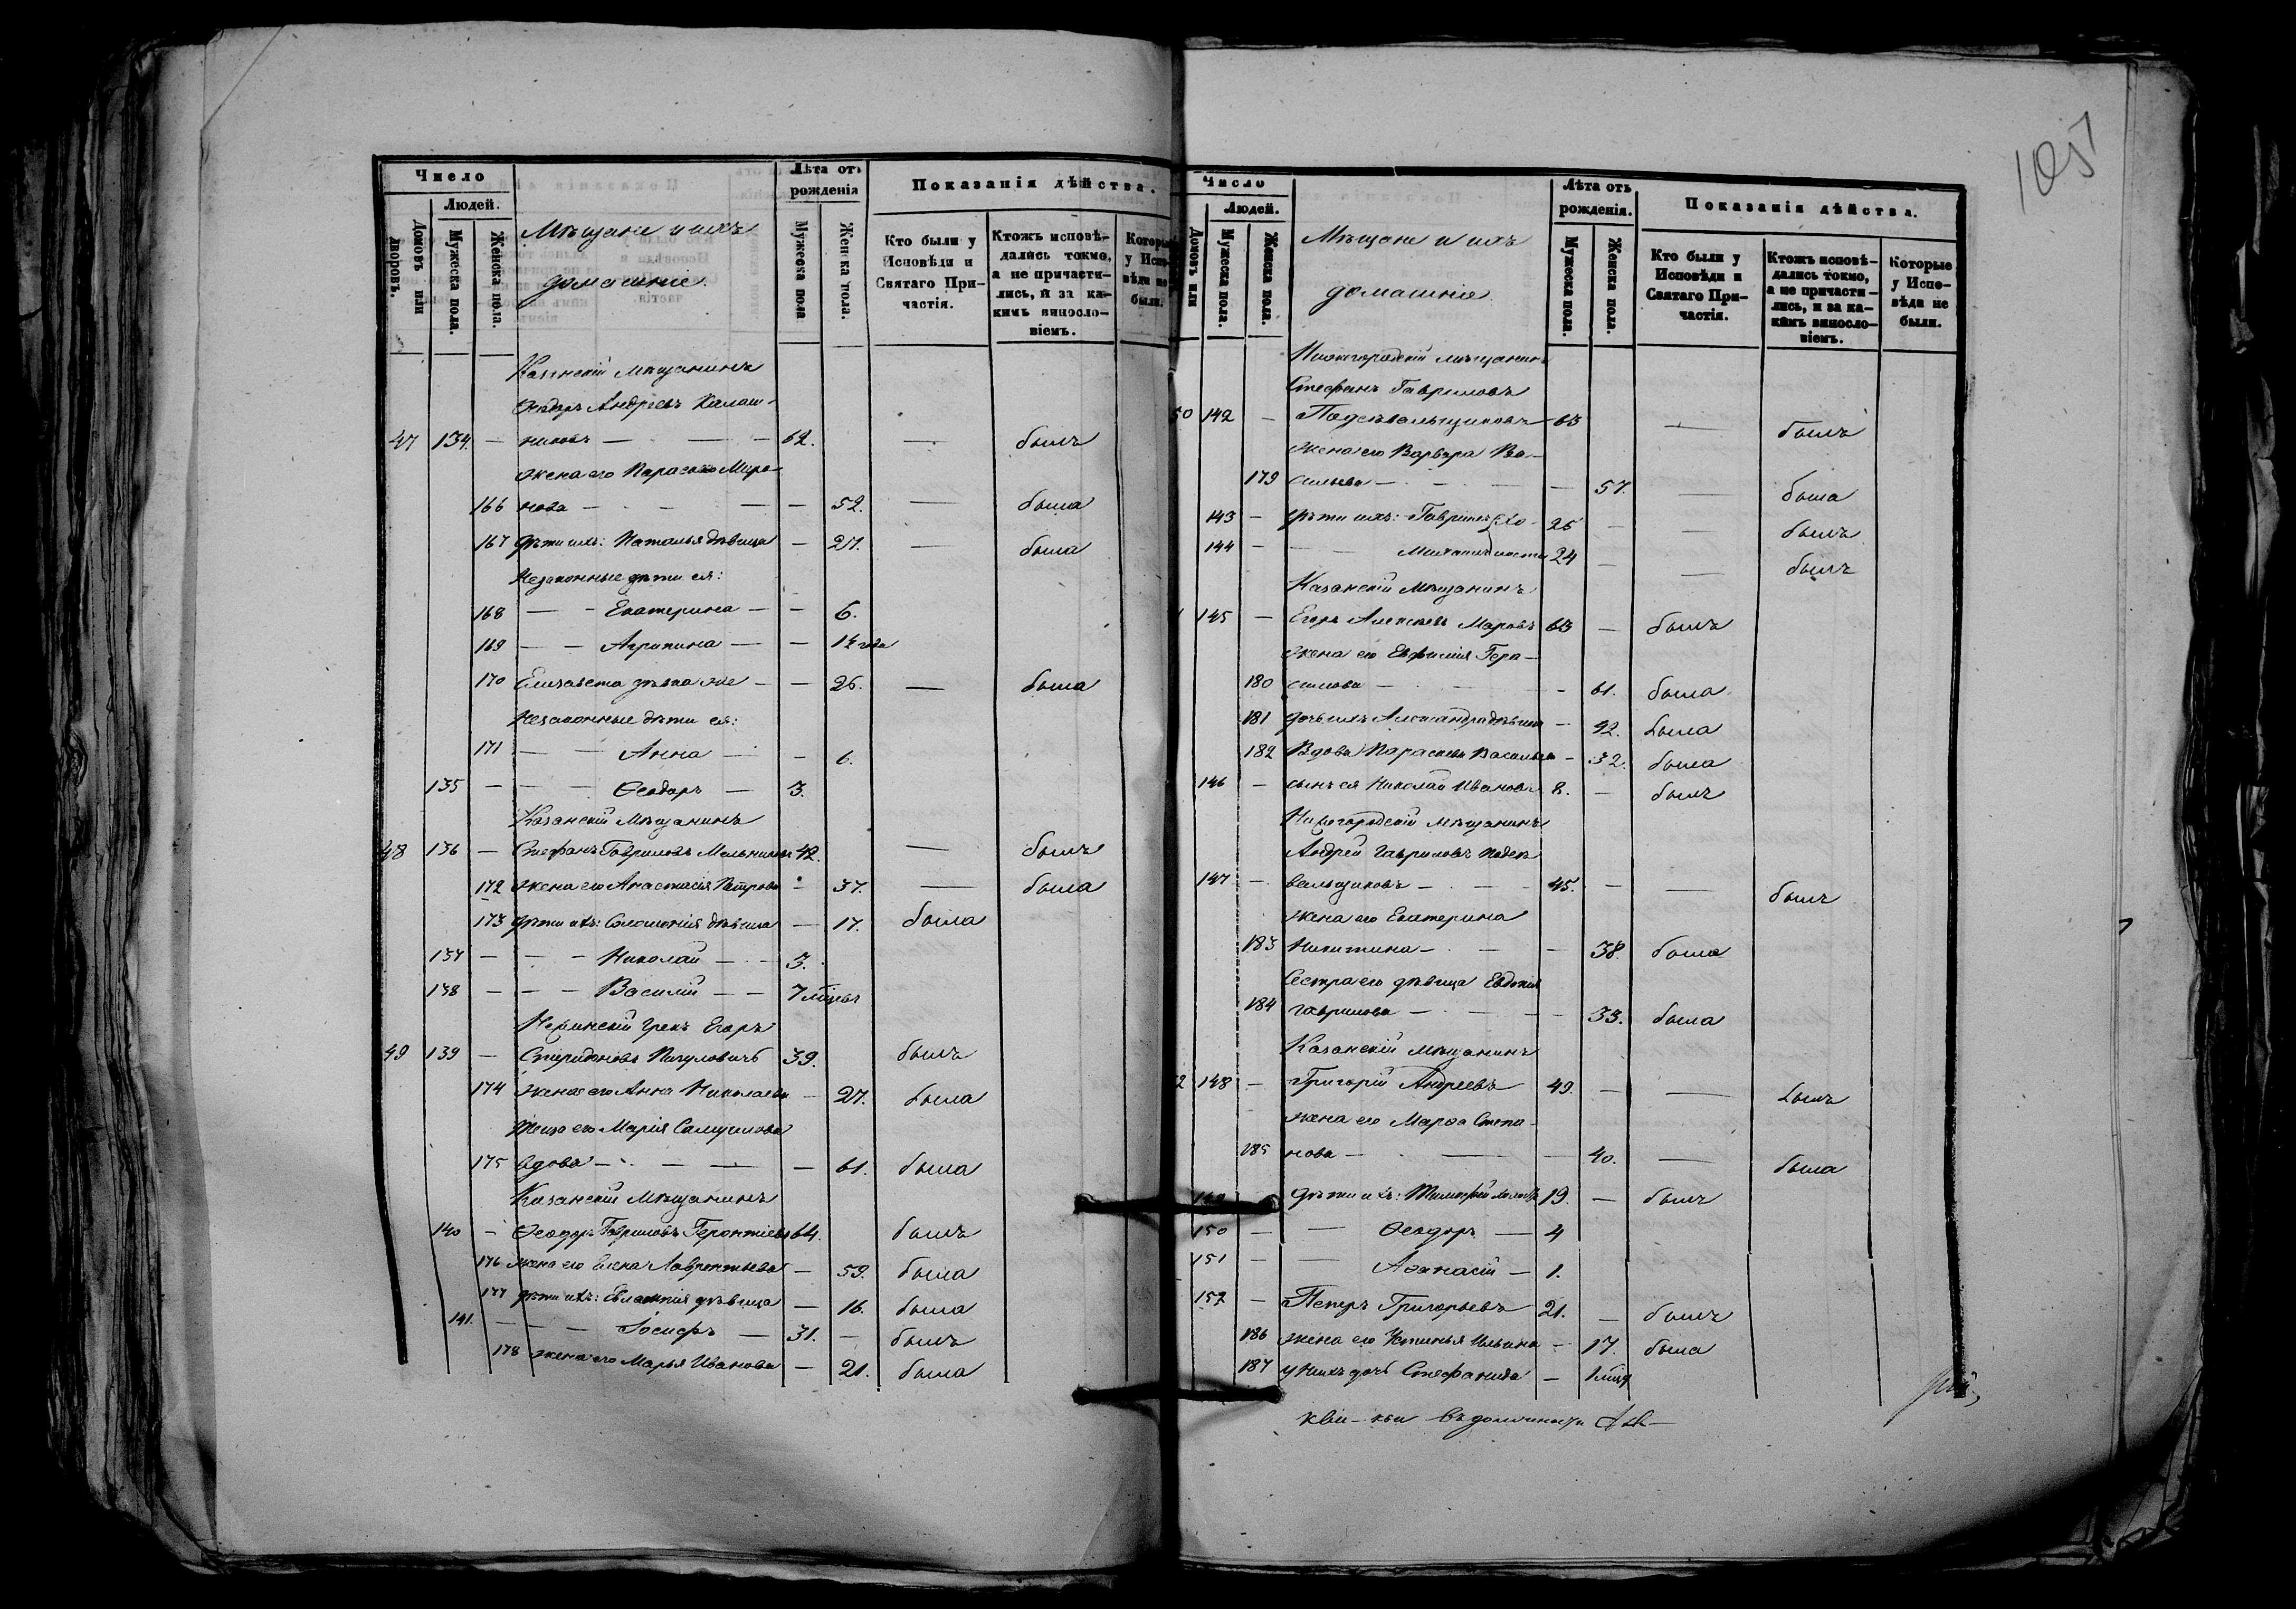 105
Число
Людей.
Домовъ или дворовъ.
Мужеска пола.
Женска пола.
Мѣщане и ихъ
домашніе.
Лѣта отъ рожденія
Мужеска пола
Женска пола.
Показанія дѣйства.
Кто были у Исповѣди и Святаго Причастія.
Ктожъ исповѣдались токмо, а не причастились, и за какимъ винословіемъ.
Которые у Исповѣди не были.
Казанскій Мѣщанинъ
Ѳедоръ Андреевъ Калаш-
47 134. — никовъ — — — 62. — былъ
жена его Параскева Миро-
166 нова — — — — 52. — была
167 дѣти ихъ: Наталья дѣвица — 27. — была
Незаконные дѣти ея:
168 — — Екатерина — — 6.
169 — — Агрипина — — 1½ года
170 Елизавета дѣвка же — — 26. — была
Незаконные дѣти ея:
171 — — Анна — — 6.
135 — — — Ѳеодоръ — 3.
Казанскій Мѣщанинъ
48 136 — Стефанъ Гавриловъ Мельниковъ 42. — былъ
172 жена его Анастасія Петрова — 37. — была
173 дѣти ихъ: Соломонія дѣвица — 17. была
137 — — — Николай — — 3.
138 — — — Василій — — 7 мѣсяцевъ
Нежинскій Грекъ Егоръ
49 139 — Спиридоновъ 39. былъ
174 жена его Анна Николаева — 27. была
Теща его Марія Самуилова
175 вдова — — — — 61. была
Казанскій Мѣщанинъ
140 — Ѳеодоръ Гавриловъ Геронтіевъ 64. былъ
176 жена его Елена Лаврентьева — 59. была
177 дѣти ихъ: Евлампія дѣвица — 16. была
141. — — — Іосифъ — 31. — былъ
178 жена его Марья Иванова — 21. была
Число
Людей.
Домовъ или
Мужеска пола.
Женска пола.
Мѣщане и ихъ
домашніе.
Лѣта отъ рожденія.
Мужеска пола.
Женска пола.
Показанія дѣйства.
Кто были у Исповѣди и Святаго Причастія.
Ктожъ исповѣдались токмо, а не причастились, и за какимъ винословіемъ.
Которые у Исповѣди не были.
Нижегородскій мѣщанинъ
Стефанъ Гавриловъ
50 142 — Подсѣвальщиковъ 63 — былъ
жена его Варвара Ва-
179 сильева — — — — 57. — была
143 — дѣти ихъ: Гавриилъ Хо- 25 — — былъ
144 — — — Михаилъ лосты 24 — — былъ
Казанскій Мѣщанинъ
145 — Егоръ Алексѣевъ Маровъ 63 — былъ
жена его Евфимія Гера-
180 симова — — — 61. была
181 дочь ихъ Александра дѣвица — 42. была
182 Вдова Параскева Васильева — 32. была
146 — сынъ ея Николай Ивановъ 8. — былъ
Нижегородскій мѣщанинъ
Андрей Гавриловъ Подсѣ-
147 — вальщиковъ — — — 45. — — былъ
жена его Екатерина
183 Никитина — — — 38. была
Сестра его дѣвица Евдокія
184 Гаврилова — — — 33. была
Казанскій мѣщанинъ
2 148 — Григорій Андреевъ 49. — — былъ
жена его Марѳа Степа-
185 нова — — — 40. — была
149 дѣти ихъ: Тимофей холостъ 19. — былъ
150 — — Ѳеодоръ — 4
151 — — Аѳанасій — 1.
152 — Петръ Григорьевъ 21. — былъ
186 жена его Устинья Ильина — 17. была
187 у нихъ дочь Стефанида —